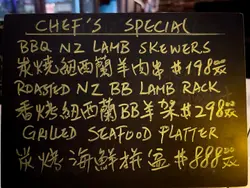 CHEF'S SPECIAL
BBQ NZ LAMB SKEWERS
炭燒紐西蘭羊肉串 #198
ROASTED NZ BB LAMB RACK
香燒紐西蘭BB羊架 #298
GRILLED SEAFOOD PLATTER
炭燒海鮮拼盆 #888